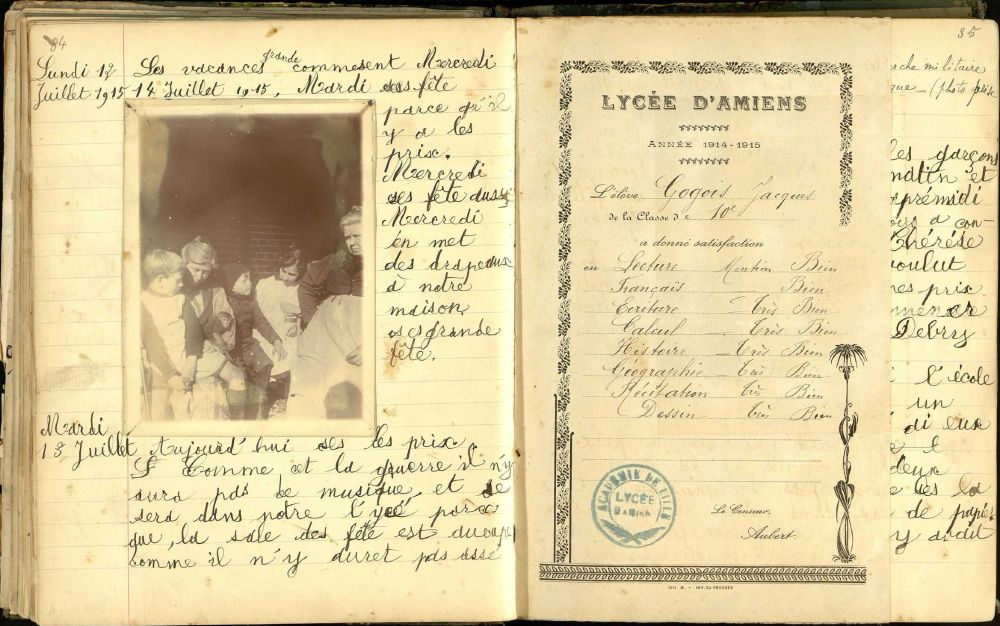 84
Lundi 12 Les vacances grande commesent Mercredi
Juillet 1915 14 Juillet 1915, Mardi ses fête
parce qu'il
y a les
prix.
Mercredi
ses fête aussi
Mercredi
en met
des drapeaux
a notre
maison
ses grande
fête.
Mardi
13 Juillet Aujourd'hui ses les prix.
Comme et la gruerre il n'y
aura pas de musique, et se
sera dans notre lycé parce
que, la sale des fête est
comme il n'y auret pas assé
LYCÉE D'AMIENS
ANNÉE 1914-1915
L'élève Gogois Jacques
de la Classe de 10e
a donné satisfaction
en Lecture Mention Bien
Français — Bien
Ecriture — Très Bien
Calcul — Très Bien
Histoire — Très Bien
Géographie — Très Bien
Récitation Très Bien
Dessin Très Bien
ACADÉMIE DE LILLE
LYCÉE
D'AMIENS
Le Censeur,
Aubert.
IMP. DU PROGRÈS
85
rche militaire
que — (photo prise
les garçons
matin et
aprémidi
a con
Thérése
voulut
mes prix
mencer
Debry
l'école
un
di eux
deux
les la
de papier
y avait